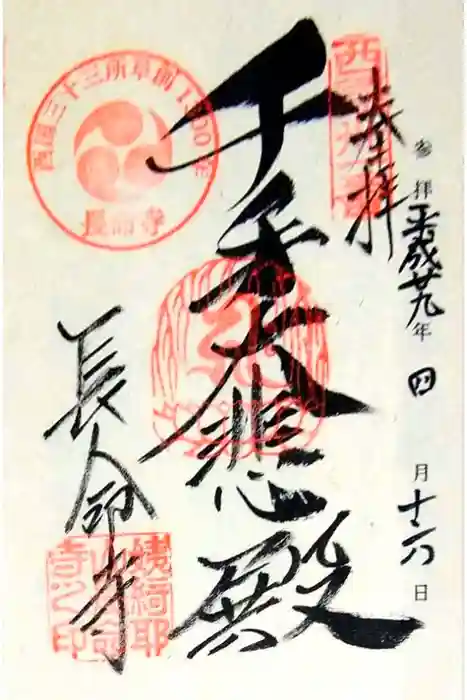 参拝 平成廿九年 四月 十六日
奉拝
西国丗一番
千手大悲殿
西国三十三所草創1300年
長命寺
長命寺
姨綺耶山長命寺之印